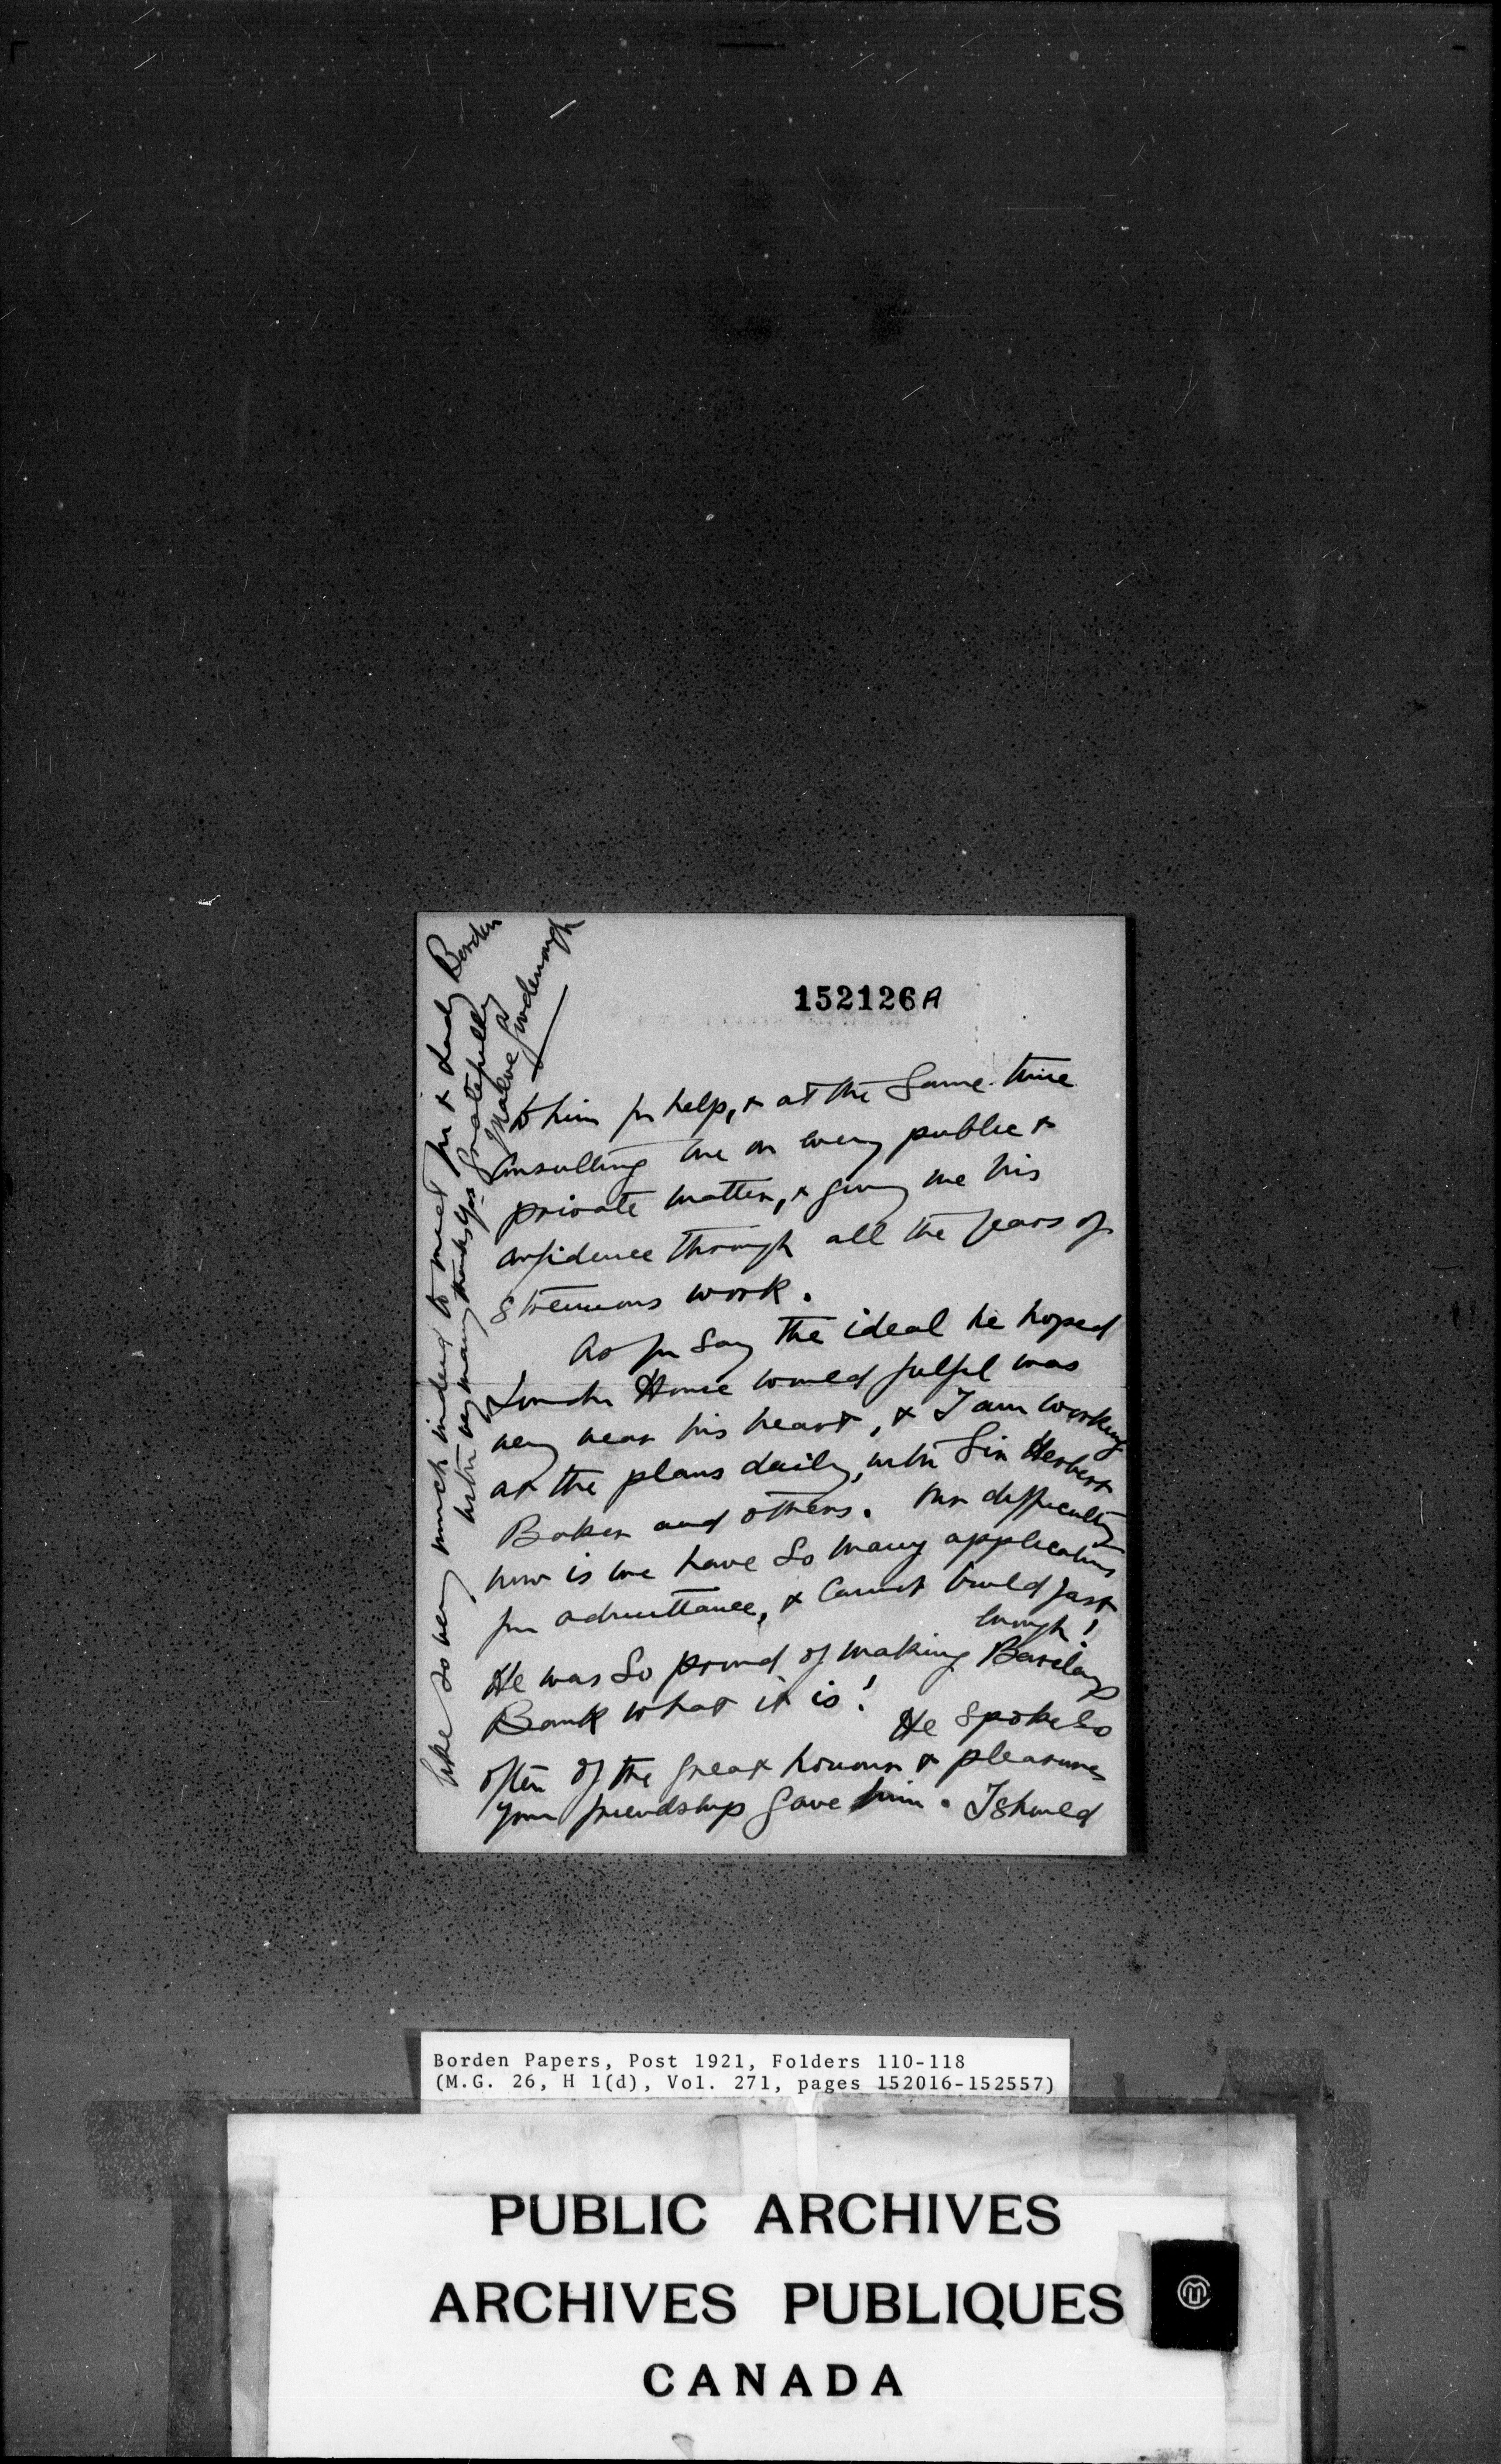 152126A
to him for help, & at the same time
consulting me on every public &
private matter, & giving me his
confidence through all the years of
strenuous work.
As you say the ideal he hoped
London House would fulfil was
very near his heart, & I am working
at the plans daily, with Sir Herbert
Baker and others. Our difficulty
now is we have so many applications
for admittance, & cannot build fast
enough!
He was so proud of making Barclays
Bank what it is! He spoke so
often of the great honour & pleasure
your friendship gave him. I should
like so very much indeed to meet you & Lady Borden
with very many thanks Yrs gratefully
Maive Goodenough
Borden Papers, Post 1921, Folders 110-118
(M.G. 26, H 1(d), Vol. 271, pages 152016-152557)
PUBLIC ARCHIVES
ARCHIVES PUBLIQUES
CANADA